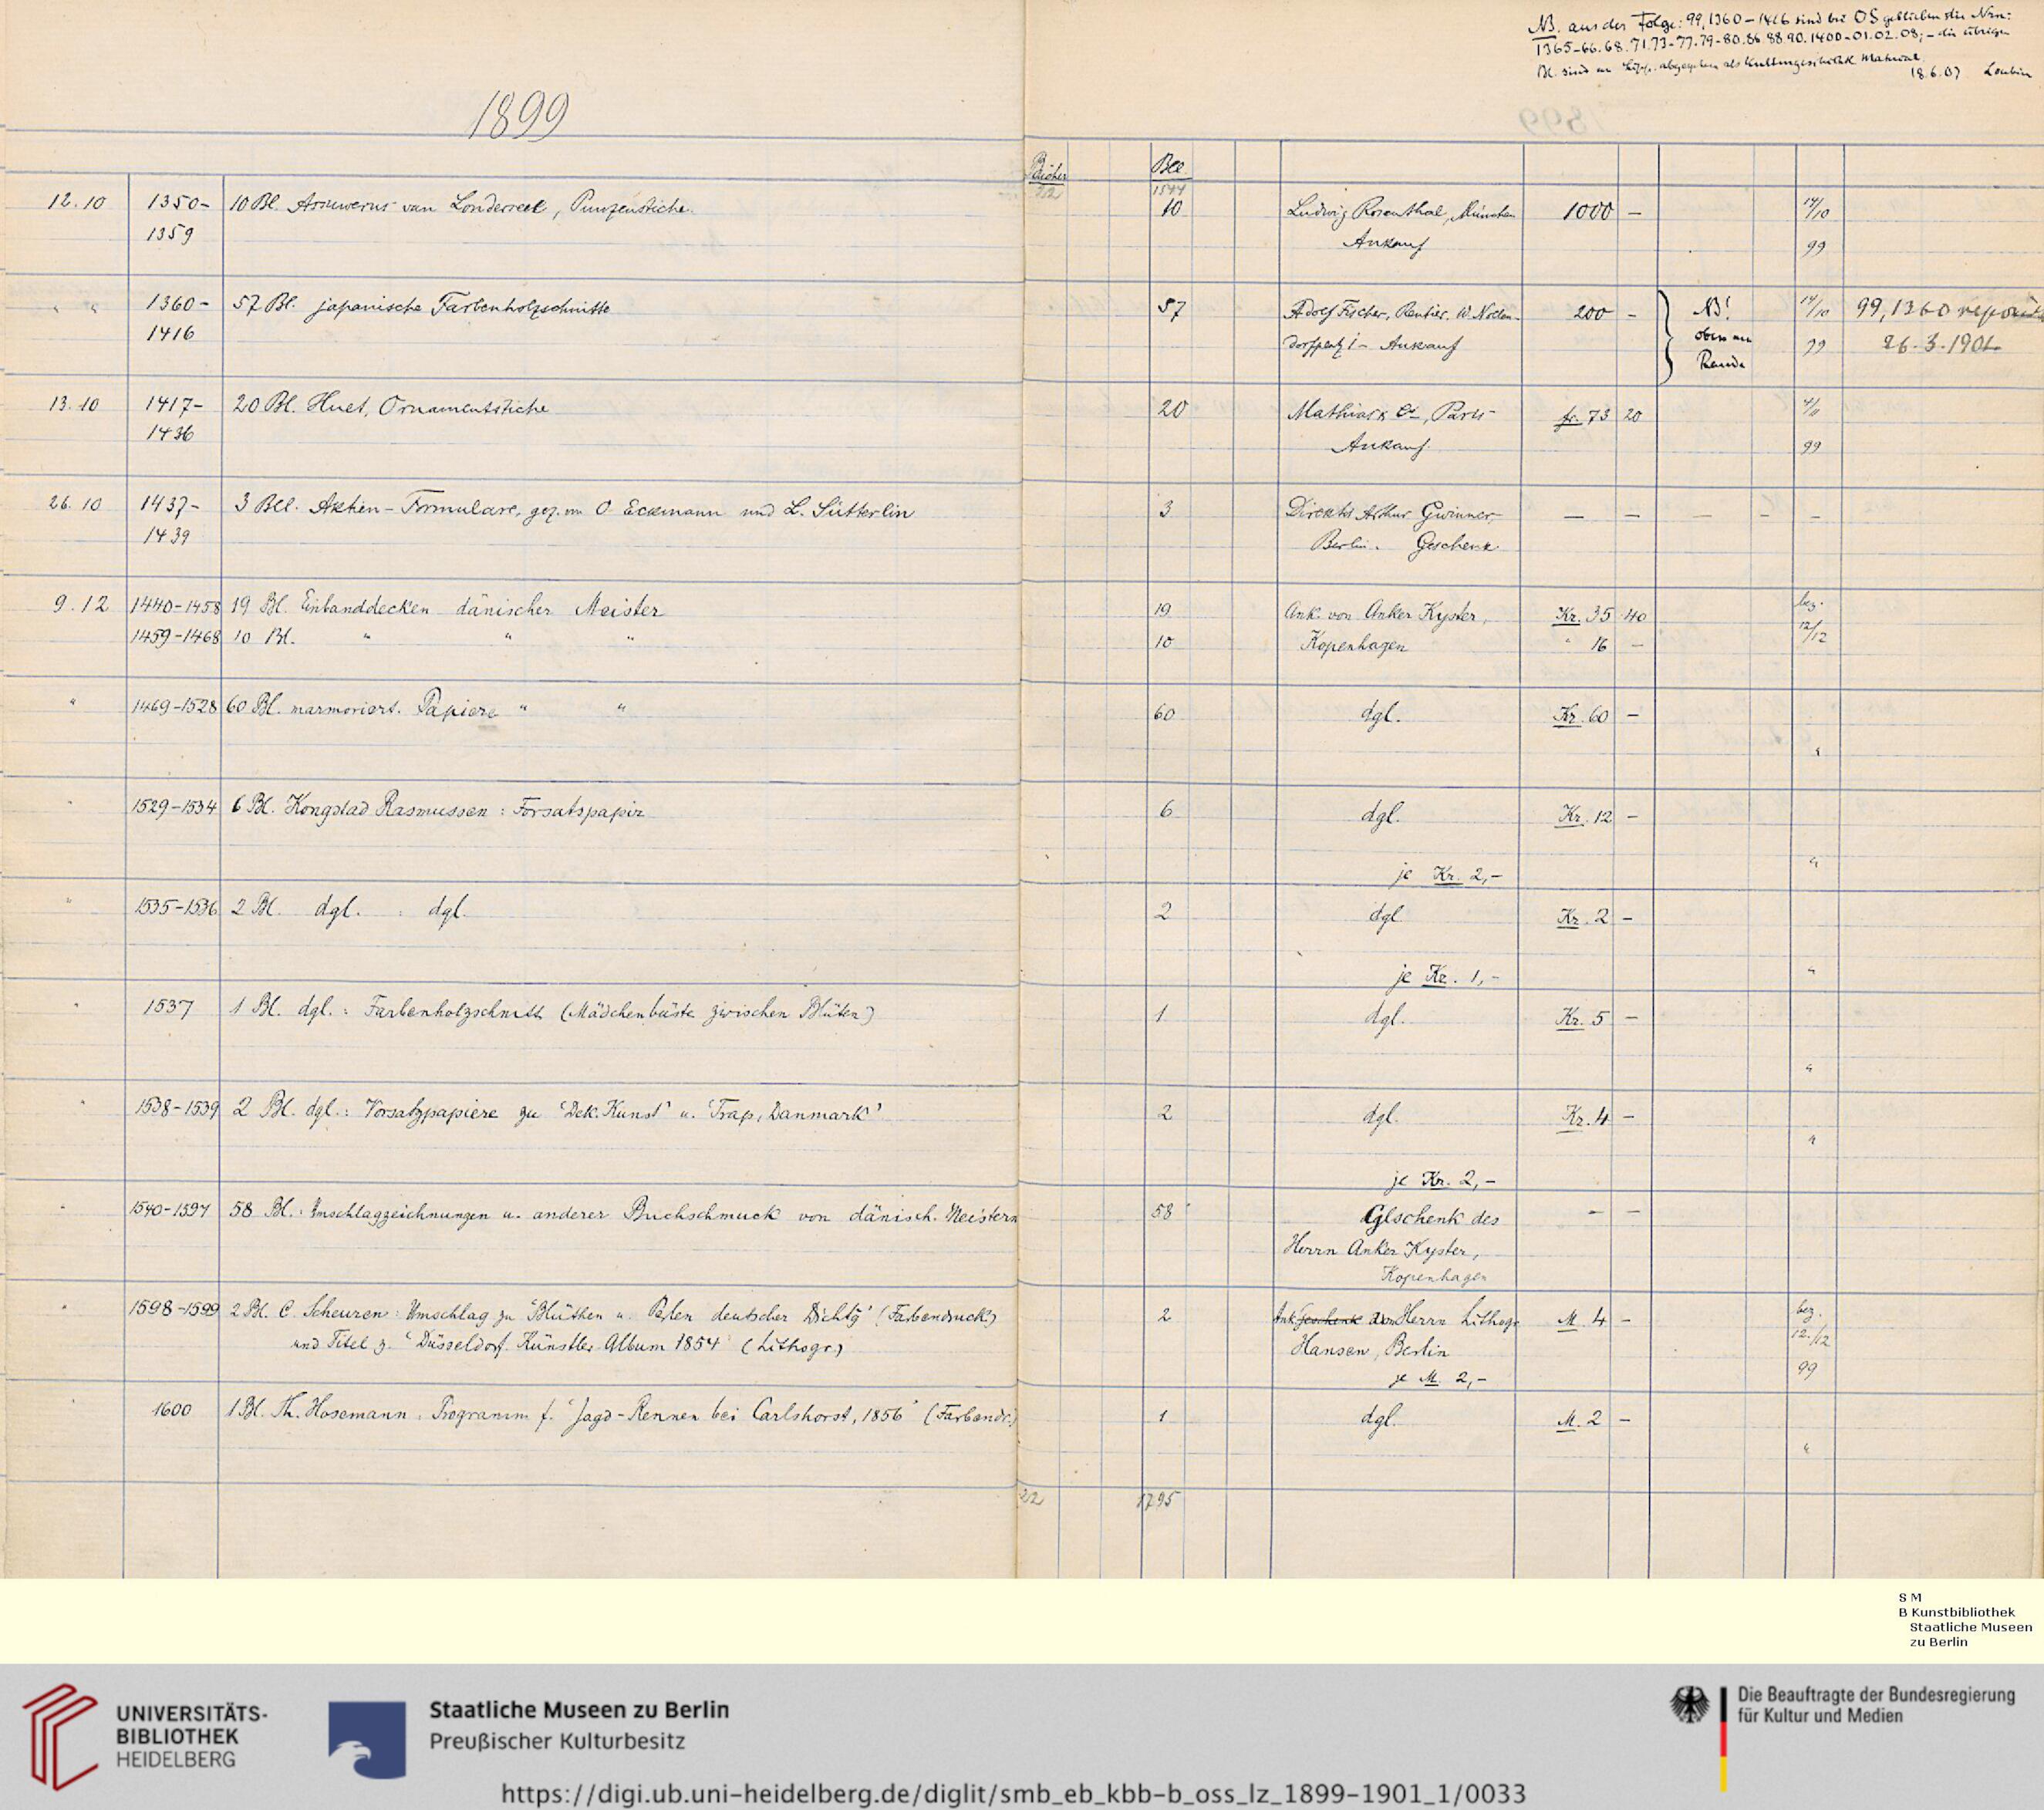 NB. aus der Folge: 99,1360-1416 sind bei OS geblieben die Nrn:
1365-66.68.71.73-77.79-80.86.88.90.1400-01.02.08; - die übrigen
Bl. sind an abgegeben als Material.
18.6.07
1899
Bücher Bll.
22 1544
12.10 1350- 10 Bl. Assuwerus van Londerseel, Punzenstiche. 10 Ludwig Rosenthal, München 1000 - 14/10
1359 Ankauf 99
" " 1360- 57 Bl. japanische Farbenholzschnitte 57 Adolf Fischer, Rentier. W. Nollen- 200 - NB! 14/10 99,1360
1416 dorfplatz 1 - Ankauf oben am 99 26.3.1901
Rande
13.10 1417- 20 Bl. Huet, Ornamentstiche 20 Mathias & Co, Paris- fr. 73 20
1436 Ankauf. 99
26.10 1437- 3 Bll. Aktien-Formulare, gez. von O. Eckmann und L. Sütterlin 3 Direktor Arthur Gwinner, - - - - -
1439 Berlin. Geschenk.
9.12 1440-1458 19 Bl. Einbanddecken dänischer Meister 19 Ank. von Anker Kyster, Kr. 35 40 bez.
1459-1468 10 Bl. " " " 10 Kopenhagen " 16 - 12/12
" 1469-1528 60 Bl. marmoriert. Papiere " " 60 dgl. Kr. 60 -
"
" 1529-1534 6 Bl. Kongstad Rasmussen : Forsatspapir 6 dgl. Kr. 12 -
"
je Kr. 2,-
" 1535-1536 2 Bl. dgl. : dgl. 2 dgl Kr. 2 -
je Kr. 1,- "
" 1537 1 Bl. dgl. : Farbenholzschnitt (Mädchenbüste zwischen Blüten) 1 dgl. Kr. 5 -
"
" 1538-1539 2 Bl. dgl.: Vorsatzpapiere zu 'Dek. Kunst' u. 'Trap, Danmark' 2 dgl. Kr. 4 -
"
je Kr. 2,-
" 1540-1597 58 Bl.: Umschlagzeichnungen u. anderer Buchschmuck von dänisch. Meistern 58 Geschenk des - -
Herrn Anker Kyster,
Kopenhagen
" 1598-1599 2 Bl. C. Scheuren : Umschlag zu "Blüthen u. Perlen deutscher Dichtg' (Farbendruck) 2 Ank. Geschenk von Herrn Lithogr. M. 4 - bez.
und Titel z. "Düsseldorf. Künstler Album 1854" (Lithogr.) Hansen, Berlin 12./12
je M. 2,- 99
" 1600 1 Bl. Th. Hosemann : Programm f. "Jagd-Rennen bei Carlshorst, 1856" (Farbendr.) 1 dgl. M. 2 -
"
22 1795
S M
B Kunstbibliothek
Staatliche Museen
zu Berlin
UNIVERSITÄTS-
BIBLIOTHEK
HEIDELBERG
Staatliche Museen zu Berlin
Preußischer Kulturbesitz
Die Beauftragte der Bundesregierung
für Kultur und Medien
https://digi.ub.uni-heidelberg.de/diglit/smb_eb_kbb-b_oss_lz_1899-1901_1/0033